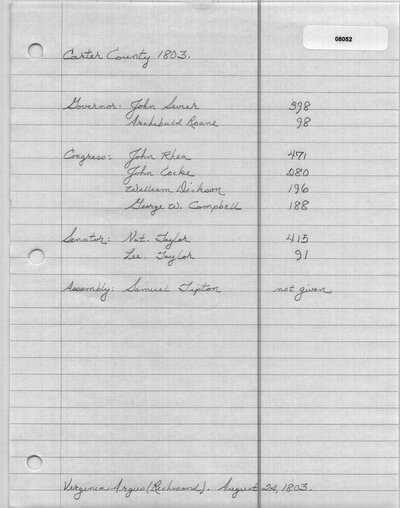 08052
Carter County 1803.
Governor: John Sevier 398
Archibald Roane 98
Congress: John Rhea 471
John Cocke 080
William Dickson 196
George W. Campbell 188
Senator: Nat. Taylor 415
Lee. Taylor 91
Assembly: Samuel Tipton not given
Virginia Argus (Richmond). August 24, 1803.